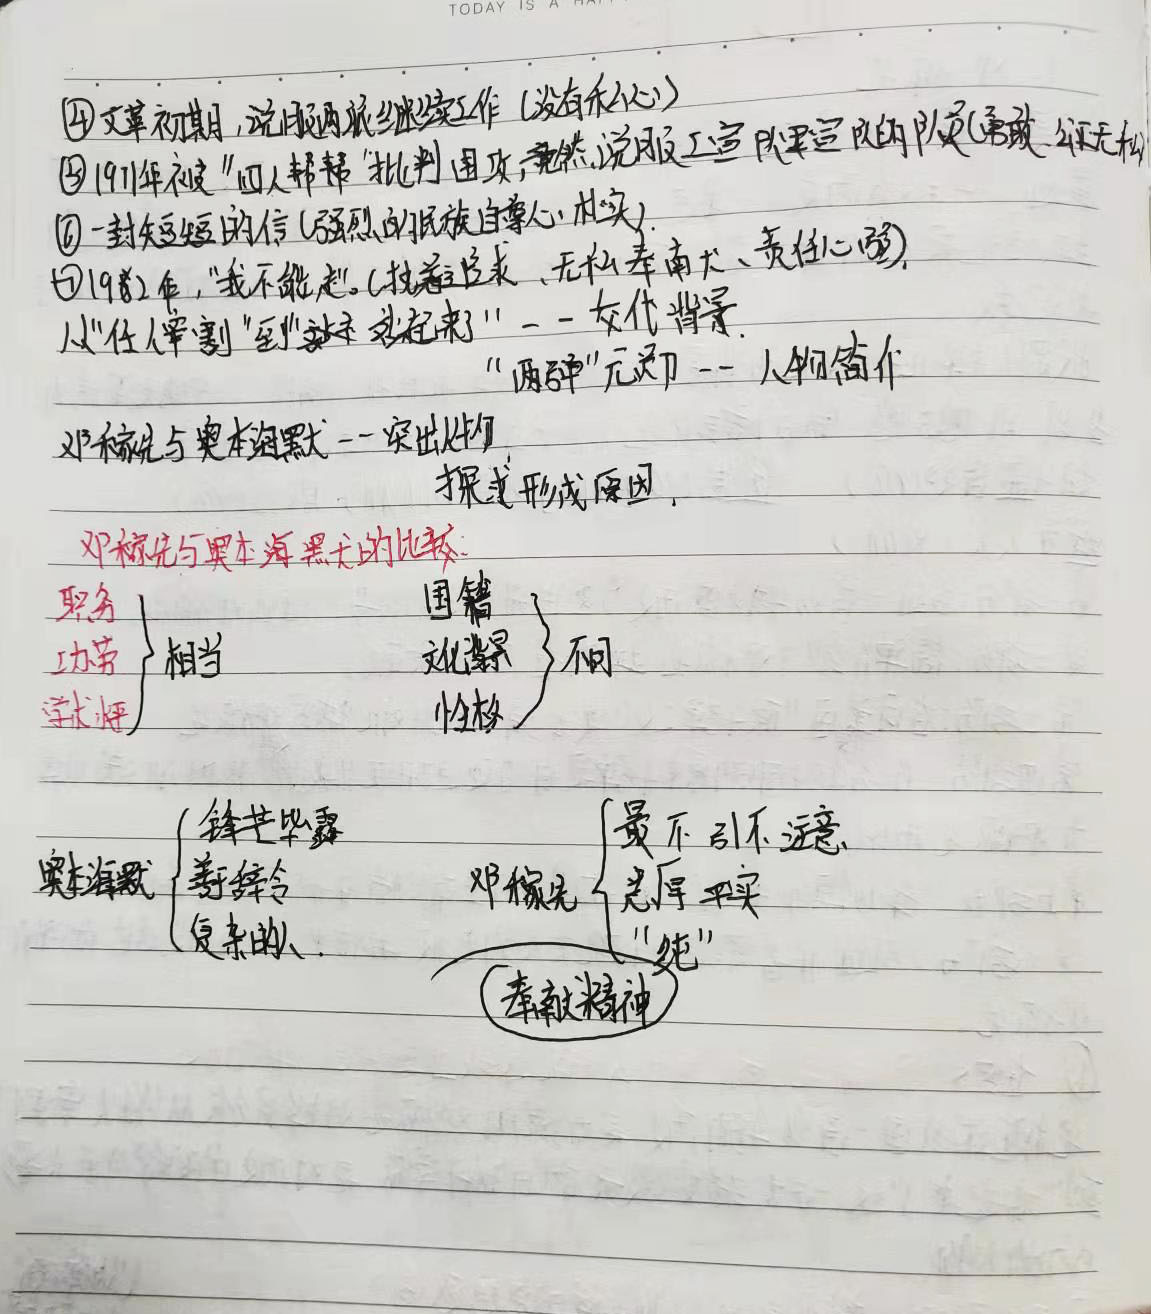 TODAY IS A HAPP
④文革初期,说服两派继续工作(没有私心)
⑤1971年被"四人帮帮"批判围攻,竟然说服工宣队军宣队的队员(勇敢、公正无私)
⑥一封短短的信(强烈的民族自尊心、朴实)
⑦1982年,"我不能走"。(执着追求、无私奉献、责任心强).
从"任人宰割"到"站起来了"--交代背景.
"两弹"元勋--人物简介
邓稼先与奥本海默--突出
探求形成原因.
邓稼先与奥本海默的比较:
职务 国籍
功劳 相当 文化背景 不同
学术 性格
锋芒毕露 最不引不注意、
奥本海默 善于辞令 邓稼先 忠厚平实
复杂的人. "纯"
奉献精神